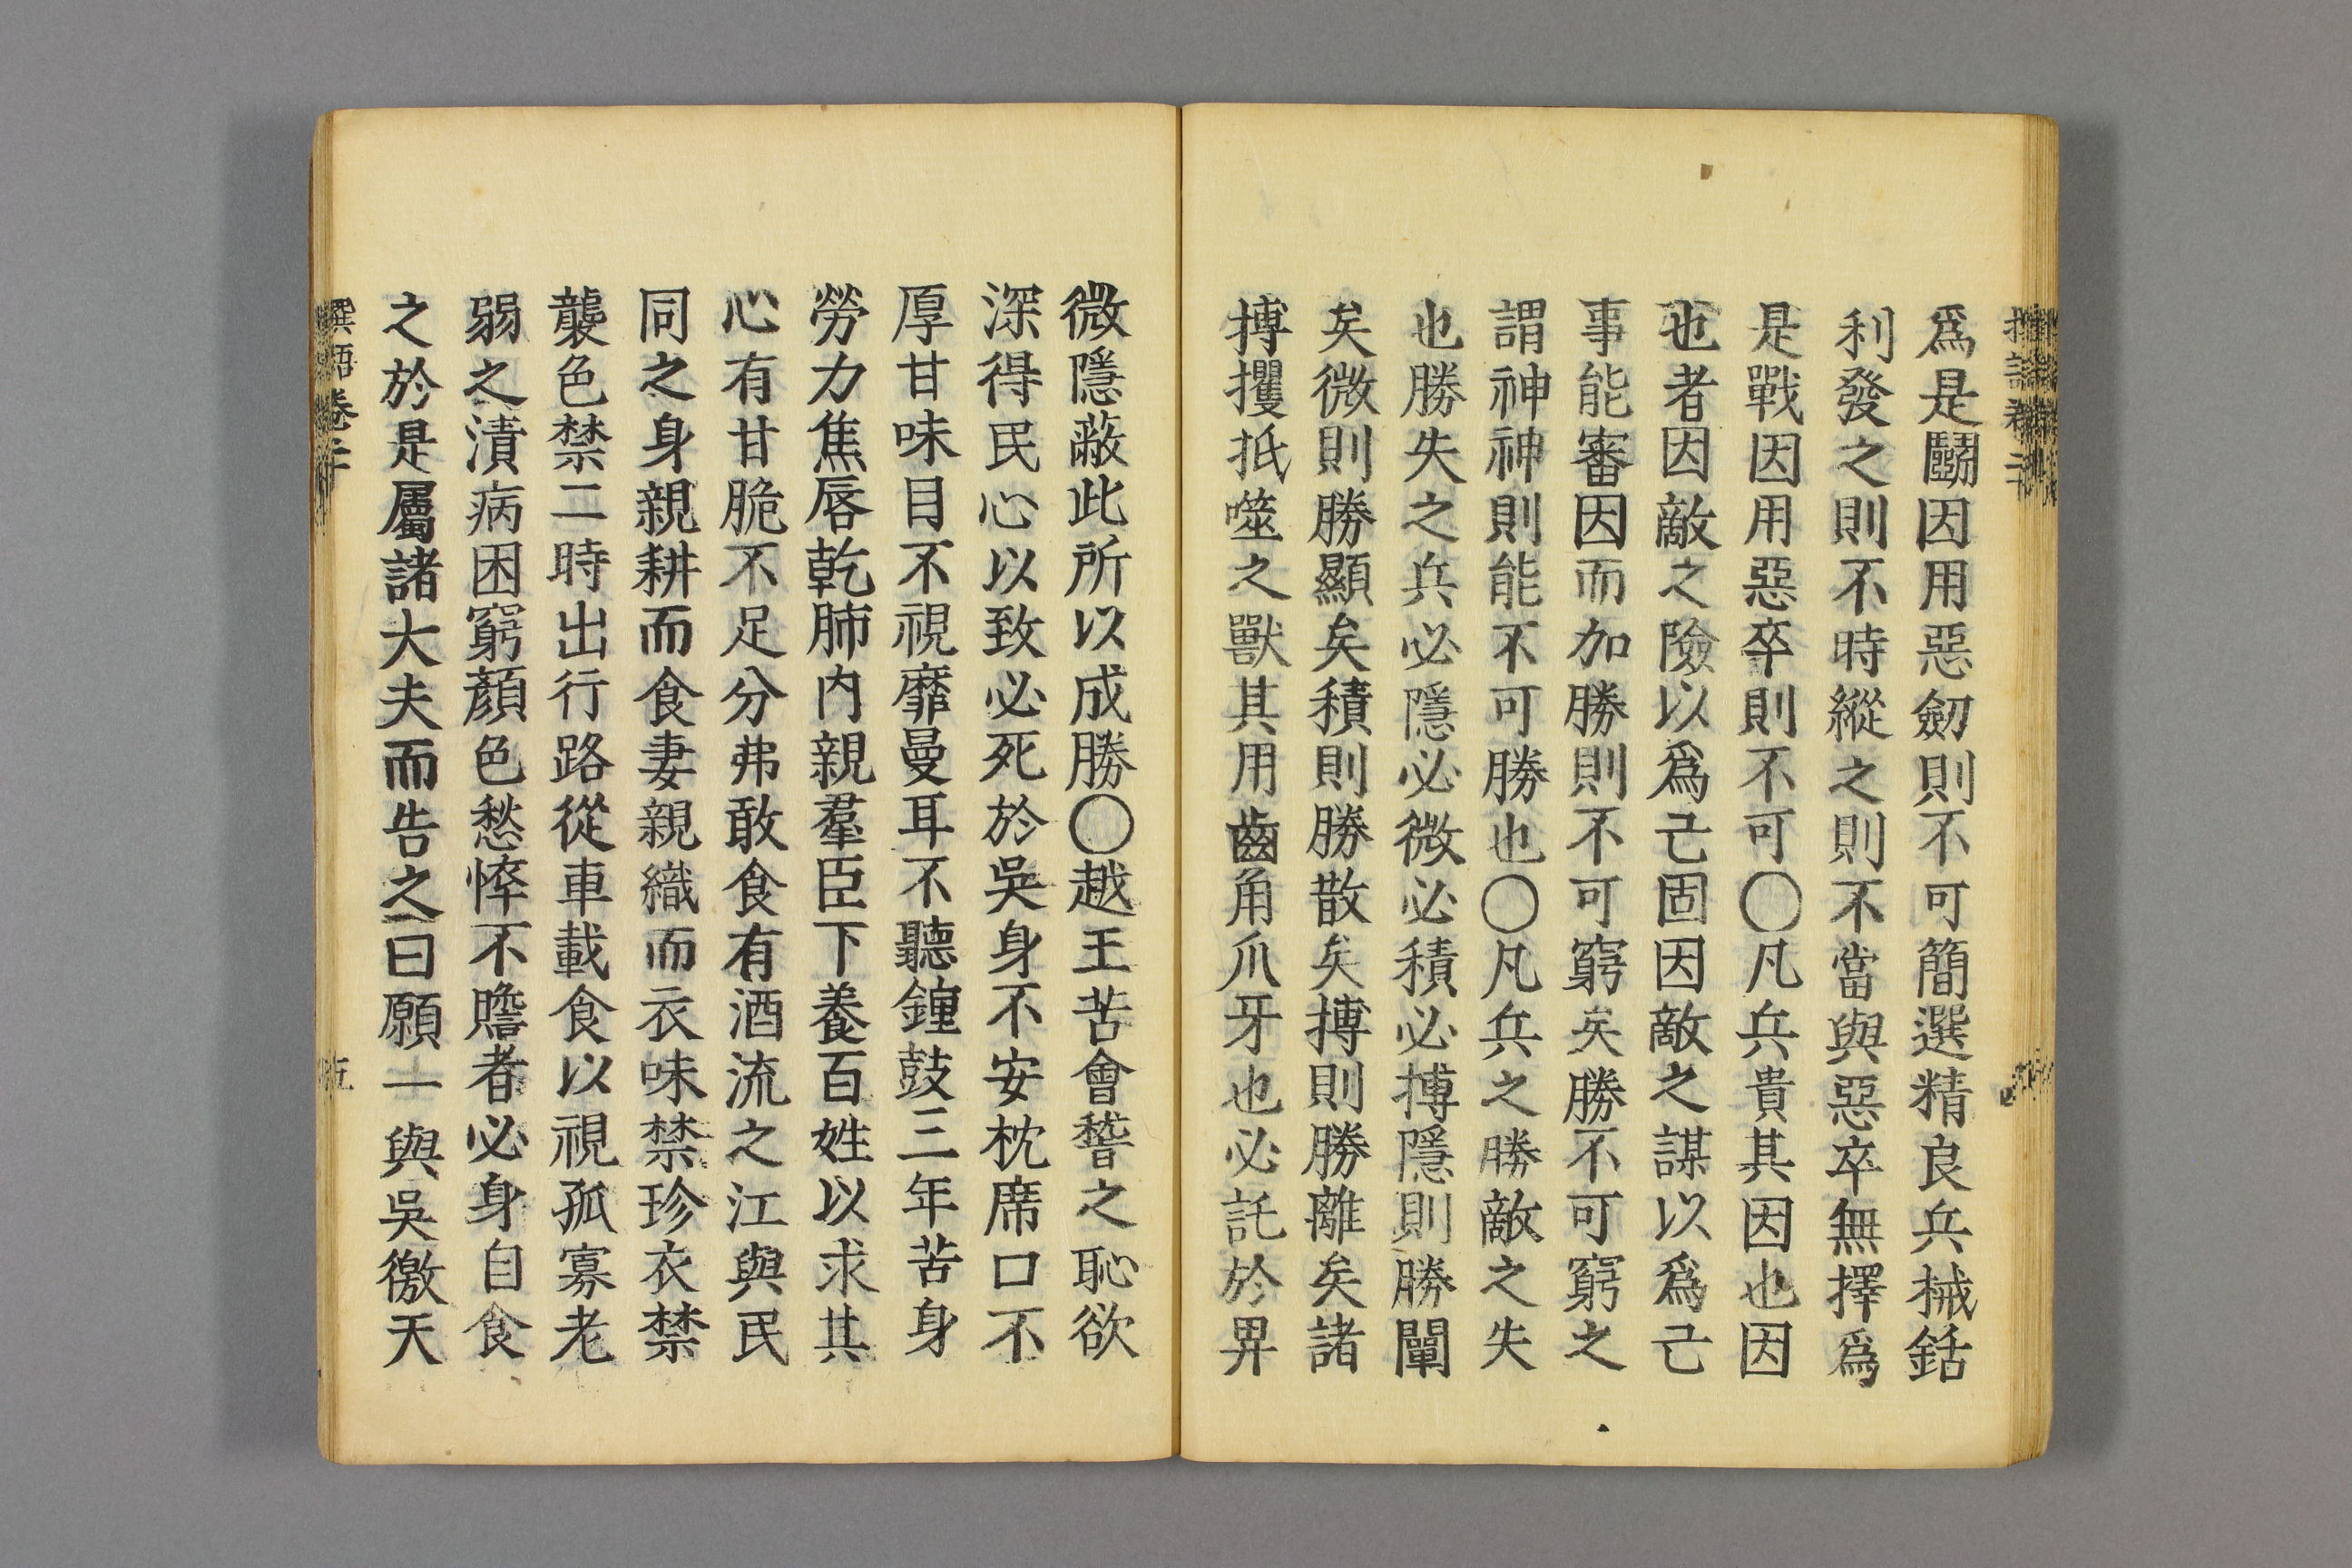 爲是鬭因用惡劒則不可簡選精良兵械銛
利發之則不時縱之則不當與惡卒無擇爲
是戰因用惡卒則不可〇凡兵貴其因也因
也者因敵之險以爲己固因敵之謀以爲己
事能審因而加勝則不可窮矣勝不可窮之
謂神神則能不可勝也〇凡兵之勝敵之失
也勝失之兵必隱必微必積必摶隱則勝闡
矣微則勝顯矣積則勝散矣摶則勝離矣諸
搏攫抵噬之獸其用齒角爪牙也必託於畀
微隱蔽此所以成勝〇越王苦會稽之恥欲
深得民心以致必死於吳身不安枕席口不
厚甘味目不視靡曼耳不聽鐘鼓三年苦身
勞力焦唇乾肺内親羣臣下養百姓以求其
心有甘脆不足分弗敢食有酒流之江與民
同之身親耕而食妻親織而衣味禁珍衣禁
襲色禁二時出行路從車載食以視孤寡老
弱之漬病困窮顔色愁悴不贍者必身自食
之於是屬諸大夫而告之曰願一與吳徼天
卷二
五